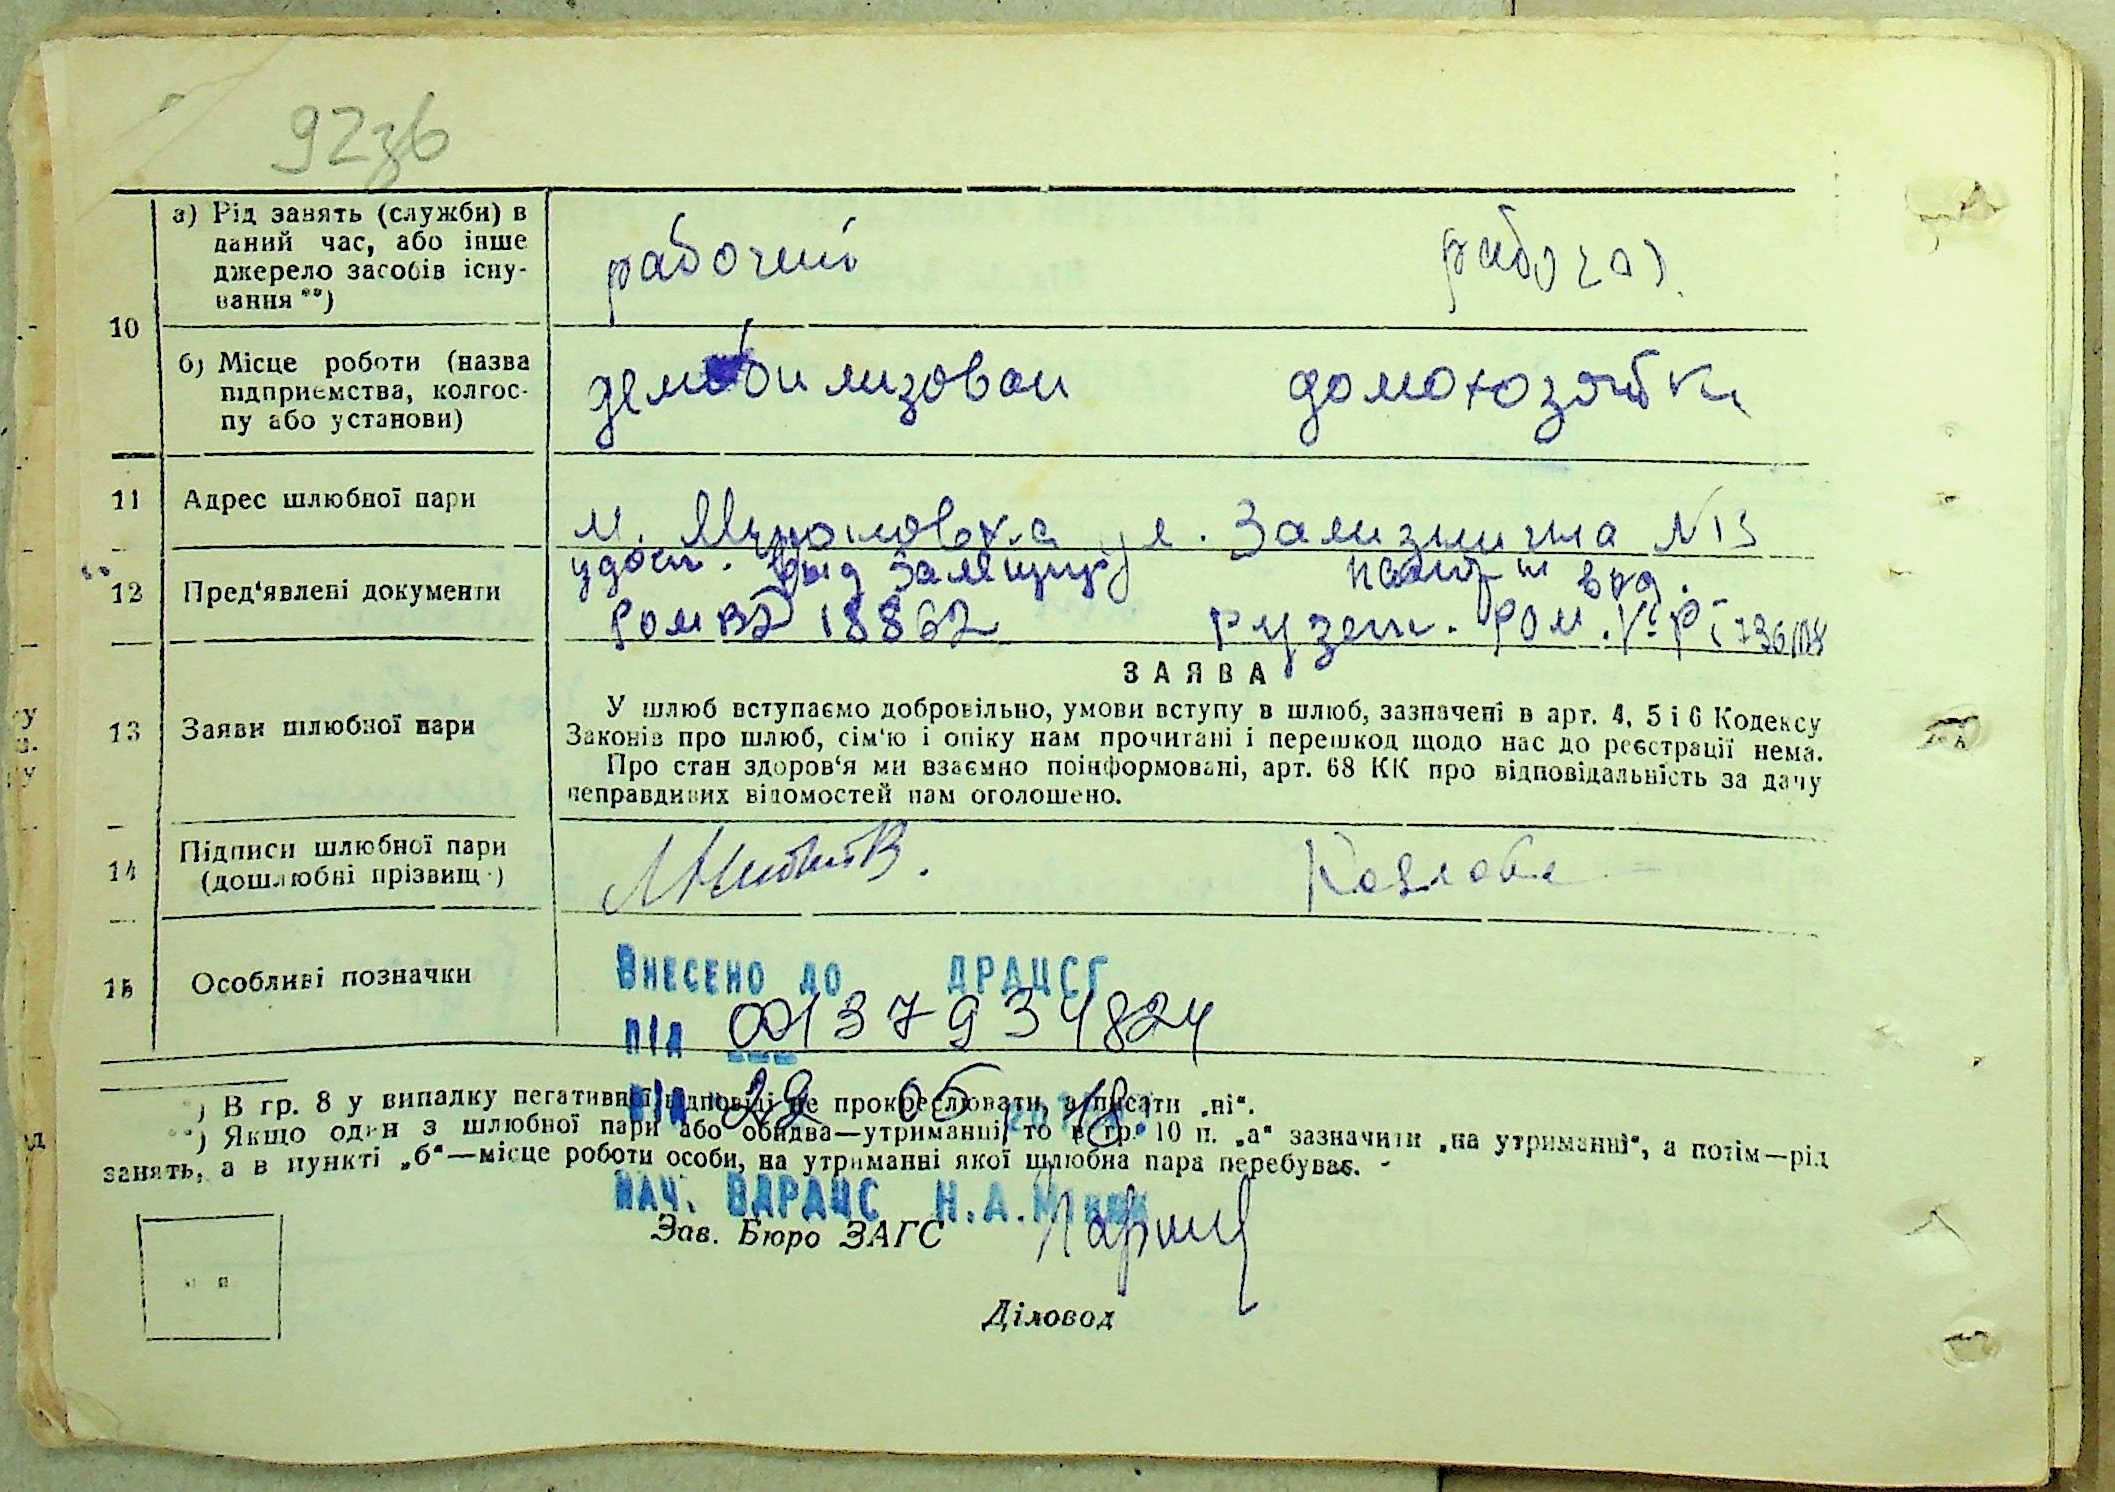 92зв
а) Рід занять (служби) в
даний час, або інше
джерело засобів існу-
вання **)
рабочий рабочая
10
б) Місце роботи (назва
підприємства, колгос-
пу або установи)
демобилизован домохозяйка
11 Адрес шлюбної пари
м. ул. Зализнична №13
удост. выд
12 Пред'явлені документи
18862 Ром.
ЗАЯВА
13 Заяви шлюбної пари
У шлюб вступаємо добровільно, умови вступу в шлюб, зазначені в арт. 4, 5 і 6 Кодексу
Законів про шлюб, сім'ю і опіку нам прочитані і перешкод щодо нас до реєстрації нема.
Про стан здоров'я ми взаємно поінформовані, арт. 68 КК про відповідальність за дачу
неправдивих відомостей нам оголошено.
14 Підписи шлюбної пари
(дошлюбні прізвища)
Козлова
15 Особливі позначки
Внесено до ДРАЦСГ
під 00137934824
від 29 05 2018
*) В гр. 8 у випадку негативної відповіді не прокреслювати, а писати „ні“.
**) Якщо один з шлюбної пари або обидва—утриманці, то в гр. 10 п. „а“ зазначити „на утриманні“, а потім—рід
занять, а в пункті „б“—місце роботи особи, на утриманні якої шлюбна пара перебуває.
Нач. ВДРАЦС Н.А.
Зав. Бюро ЗАГС
Діловод